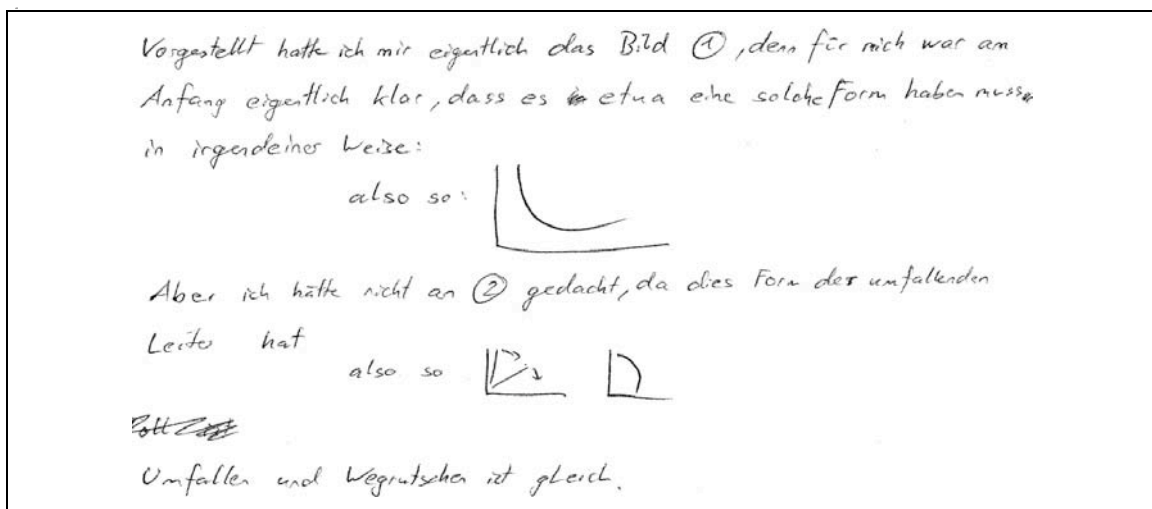 Vorgestellt hatte ich mir eigentlich das Bild ①, denn für mich war am
Anfang eigentlich klar, dass es etwa eine solche Form haben muss
in irgendeiner Weise:
also so:
Aber ich hätte nicht an ② gedacht, da dies Form der umfallenden
Leiter hat
also so
Umfallen und Wegrutschen ist gleich.